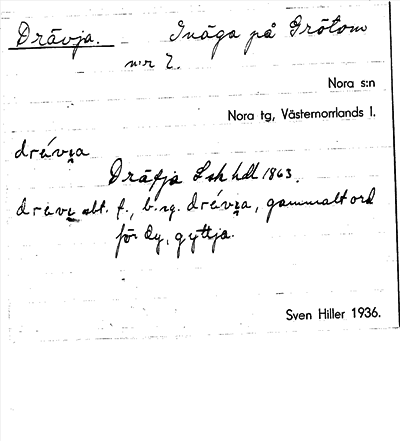 Drävja. Inäga på Grötom
n:r 2.
Nora s:n
Nora tg, Västernorrlands l.
drévi̯a
Dräfja Lsk hdl 1863.
drévi̯ obt. f., b. sg. drévi̯a, gammalt ord
för dy, gyttja.
Sven Hiller 1936.